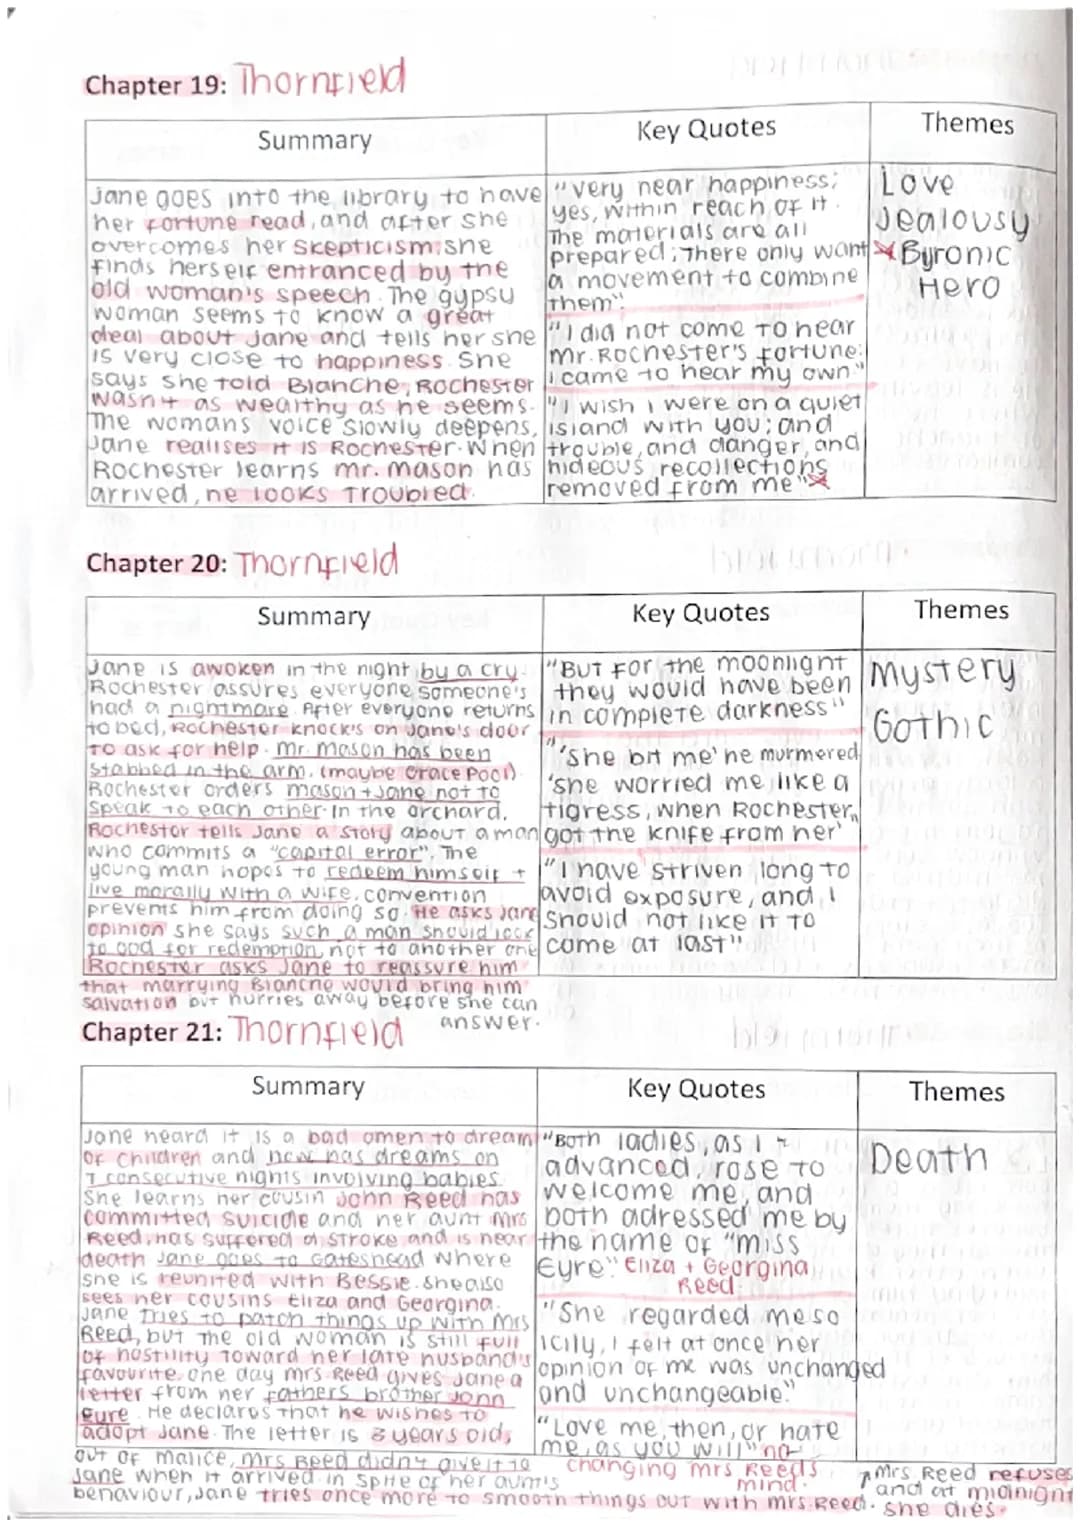 Chapter 19: Thornfield
Summary
Key Quotes
Themes
Jane goes into the library to have
her fortune read, and after she
overcomes her skepticism, she
finds herself entranced by the
old woman's speech. The gypsy
woman seems to know a great
deal about Jane and tells her she
is very close to happiness. She
says she told Blanche, Rochester
wasn't as wealthy as he seems.
The womans voice slowly deepens,
Jane realises it is Rochester. When
Rochester learns mr. mason has
arrived, he looks troubled.
"very near happiness;
yes, within reach of it.
The materials are all
prepared; there only want
a movement to combine
them"
"I did not come to hear
Mr. Rochester's fortune:
I came to hear my own."
"I wish I were on a quiet
island with you; and
trouble, and danger, and
hideous recollections
removed from me"
Love
Jealousy
Byronic
Hero
Chapter 20: Thornfield
Summary
Key Quotes
Themes
Jane is awoken in the night by a cry.
Rochester assures everyone someone's
had a nightmare. After everyone returns
to bed, Rochester knock's on Jane's door
to ask for help. Mr. Mason has been
stabbed in the arm. (maybe Grace Pool).
Rochester orders mason + Jane not to
speak to each other. In the orchard,
Rochester tells Jane a story about a man
who commits a "capital error". The
young man hopes to redeem himself +
live morally with a wife, convention
prevents him from doing so. He asks Jane
opinion she says such a man should look
to god for redemption, not to another one
Rochester asks Jane to reassure him
that marrying Blanche would bring him
salvation but hurries away before she can
answer.
"But for the moonlight
they would have been
in complete darkness"
"'She bit me' he murmered
'she worried me, like a
tigress, when Rochester
got the knife from her'
"I have striven long to
avoid exposure, and I
should not like it to
come at last"
Mystery
Gothic
Chapter 21: Thornfield
Summary
Key Quotes
Themes
Jane heard it is a bad omen to dream
of children and now has dreams on
7 consecutive nights involving babies.
She learns her cousin John Reed has
committed suicide and her aunt Mrs
Reed, has suffered a stroke and is near
death Jane goes to Gateshead where
she is reunited with Bessie. she also
sees her cousins Eliza and Georgina.
Jane tries to patch things up with Mrs
Reed, but the old woman is still full
of hostility toward her late husband's
favourite. one day mrs. Reed gives Jane a
letter from her fathers brother John
Eyre. He declares that he wishes to
adopt Jane. The letter is 3 years old,
out of malice, Mrs Reed didn't give it to
Jane when it arrived. in spite of her aunt's
behaviour, Jane tries once more to smooth things out with mrs. Reed.
"Both ladies, as I
advanced, rose to
welcome me, and
both adressed me by
the name of "miss
Eyre." Eliza + Georgina
Reed.
"She regarded me so
icily, I felt at once her
opinion of me was unchanged
and unchangeable."
"Love me, then, or hate
me, as you will" not
changing mrs Reeds
mind.
Death
Mrs Reed refuses
and at midnight
she dies.